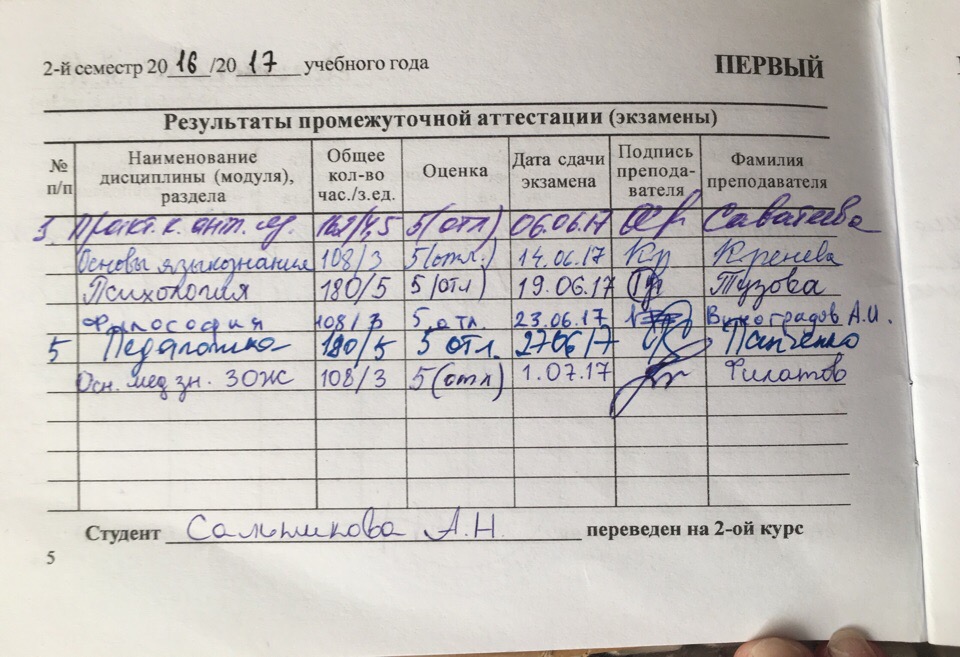 2-й семестр 2016/2017 учебного года ПЕРВЫЙ
Результаты промежуточной аттестации (экзамены)
№ п/п Наименование дисциплины (модуля), раздела Общее кол-во час./з.ед. Оценка Дата сдачи экзамена Подпись препода-вателя Фамилия преподавателя
3 Практ. к. англ. яз. 162/4,5 5(отл) 06.06.17 Саватеева
Основы языкознания 108/3 5(отл.) 14.06.17 Кр Кренева
Психология 180/5 5(отл) 19.06.17 Тузова
Философия 108/3 5 отл. 23.06.17 Виноградов А.И.
5 Педагогика 180/5 5 отл. 270617 Панченко
Осн. мед зн. ЗОЖ 108/3 5(отл) 1.07.17 Филатов
Студент Сальникова А.Н. переведен на 2-ой курс
5